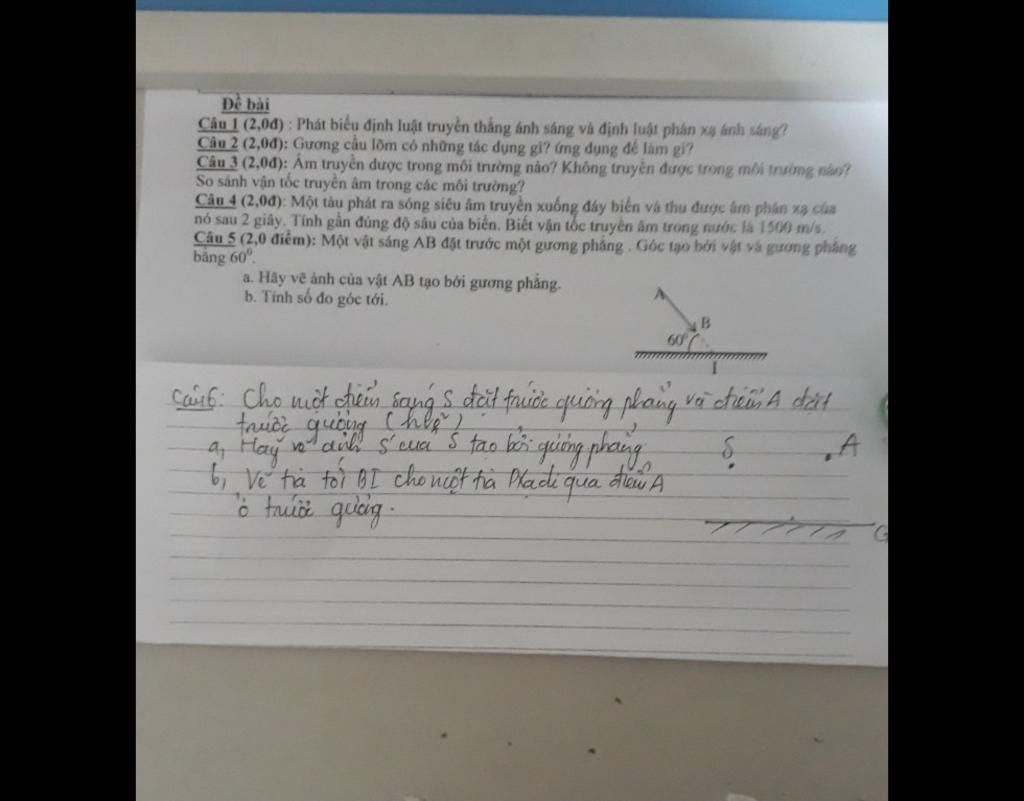 Đề bài
Câu 1 (2,0đ) : Phát biểu định luật truyền thẳng ánh sáng và định luật phản xạ ánh sáng?
Câu 2 (2,0đ): Gương cầu lõm có những tác dụng gì? ứng dụng để làm gì?
Câu 3 (2,0đ): Âm truyền được trong môi trường nào? Không truyền được trong môi trường nào?
So sánh vận tốc truyền âm trong các môi trường?
Câu 4 (2,0đ): Một tàu phát ra sóng siêu âm truyền xuống đáy biển và thu được âm phản xạ của
nó sau 2 giây. Tính gần đúng độ sâu của biển. Biết vận tốc truyền âm trong nước là 1500 m/s.
Câu 5 (2,0 điểm): Một vật sáng AB đặt trước một gương phẳng . Góc tạo bởi vật và gương phẳng
bằng 60⁰.
a. Hãy vẽ ảnh của vật AB tạo bởi gương phẳng.
b. Tính số đo góc tới.
A
B
60⁰
I
Câu 6: Cho một điểm sáng S đặt trước gương phẳng và điểm A đặt
trước gương (hvẽ)
a, Hãy vẽ ảnh S' của S tạo bởi gương phẳng
S
A
b, Vẽ tia tới BI cho một tia Pxạ đi qua điểm A
ở trước gương.
G